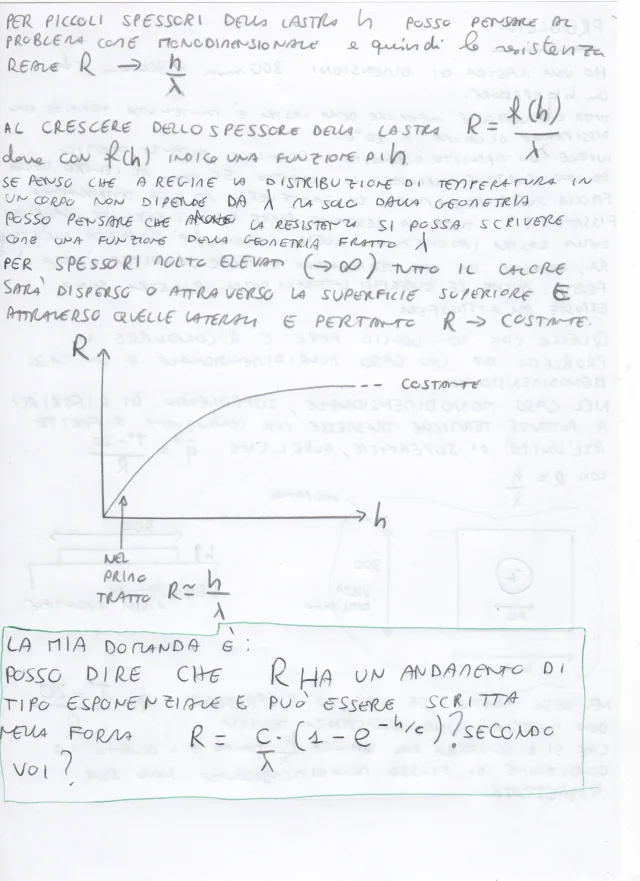 PER PICCOLI SPESSORI DELLA LASTRA h POSSO PENSARE AL
PROBLEMA COME MONODIMENSIONALE e quindi la resistenza
REALE R → h/λ
AL CRESCERE DELLO SPESSORE DELLA LASTRA R = f(h)/λ
dove con f(h) INDICO UNA FUNZIONE DI h
SE PENSO CHE A REGIME LA DISTRIBUZIONE DI TEMPERATURA IN
UN CORPO NON DIPENDE DA λ MA SOLO DALLA GEOMETRIA
POSSO PENSARE CHE ANCHE LA RESISTENZA SI POSSA SCRIVERE
COME UNA FUNZIONE DELLA GEOMETRIA FRATTO λ
PER SPESSORI MOLTO ELEVATI (→∞) TUTTO IL CALORE
SARÀ DISPERSO O ATTRAVERSO LA SUPERFICIE SUPERIORE E
ATTRAVERSO QUELLE LATERALI E PERTANTO R → COSTANTE.
R
COSTANTE
h
NEL
PRIMO
TRATTO R ≃ h/λ
LA MIA DOMANDA È :
POSSO DIRE CHE R HA UN ANDAMENTO DI
TIPO ESPONENZIALE E PUÒ ESSERE SCRITTA
NELLA FORMA R = C/λ · (1 - e^(-h/c)) ? SECONDO
VOI ?